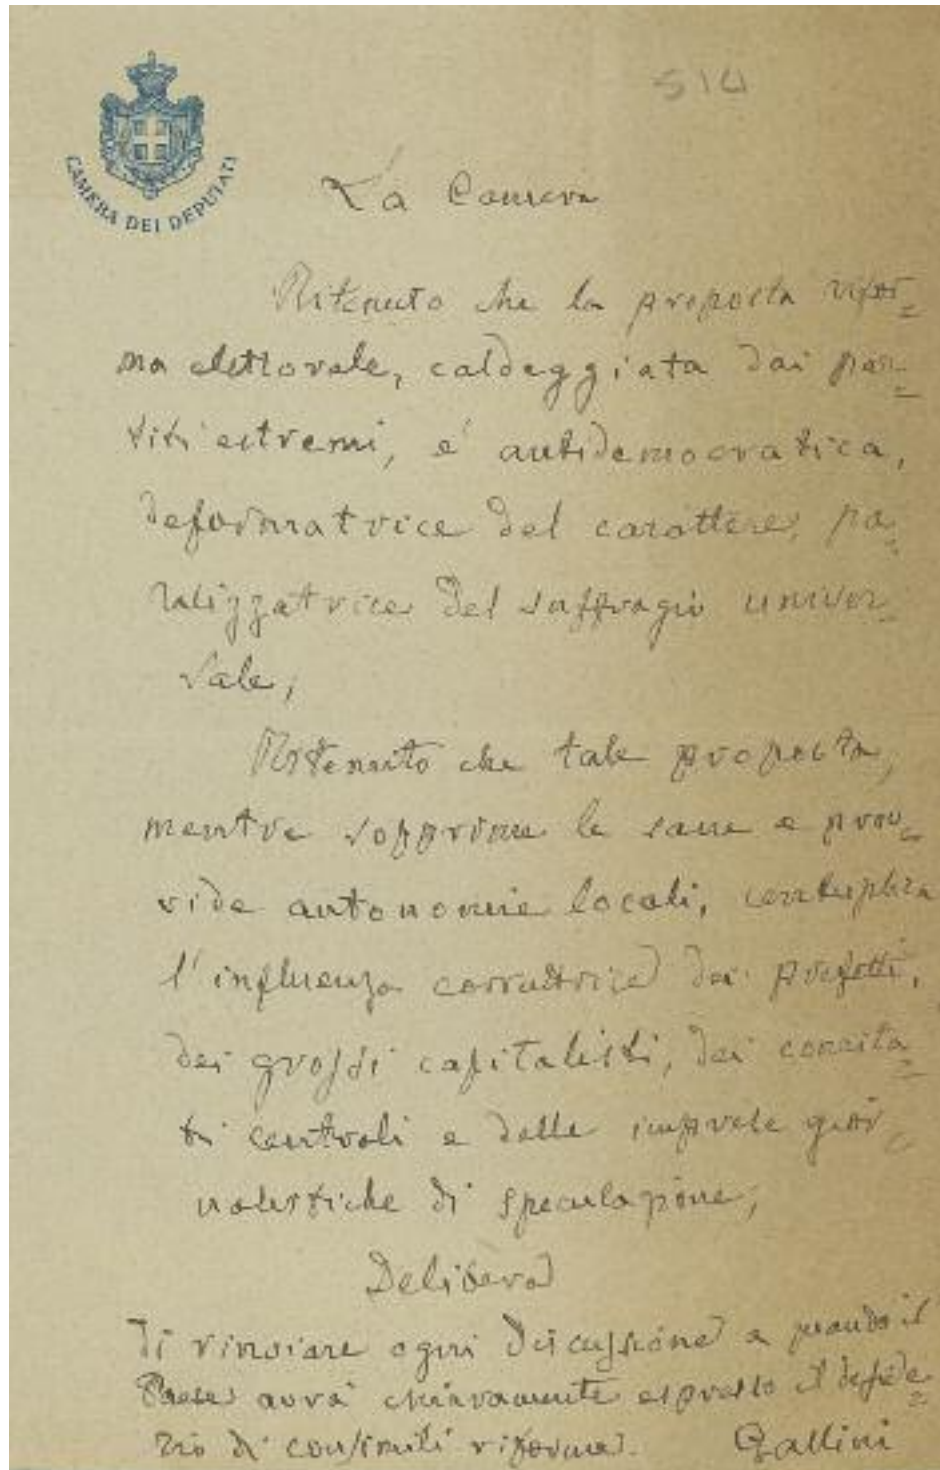 514
CAMERA DEI DEPUTATI
La Camera
Ritenuto che la proposta rifor=
ma elettorale, caldeggiata dai par=
titi estremi, e' antidemocratica,
deformatrice del carattere, pa=
ralizzatrice del suffragio univer=
sale,
Ritenuto che tale proposta,
mentre sopprime le sane e prov=
vide autonomie locali, centuplica
l'influenza corruttrice dei prefetti,
dei grossi capitalisti, dei comita=
ti centrali e delle imprese gior=
nalistiche di speculazione,
Delibera
di rinviare ogni discussione a quando il
Paese avrà chiaramente espresso il deside=
rio di consimili riforme. Gallini